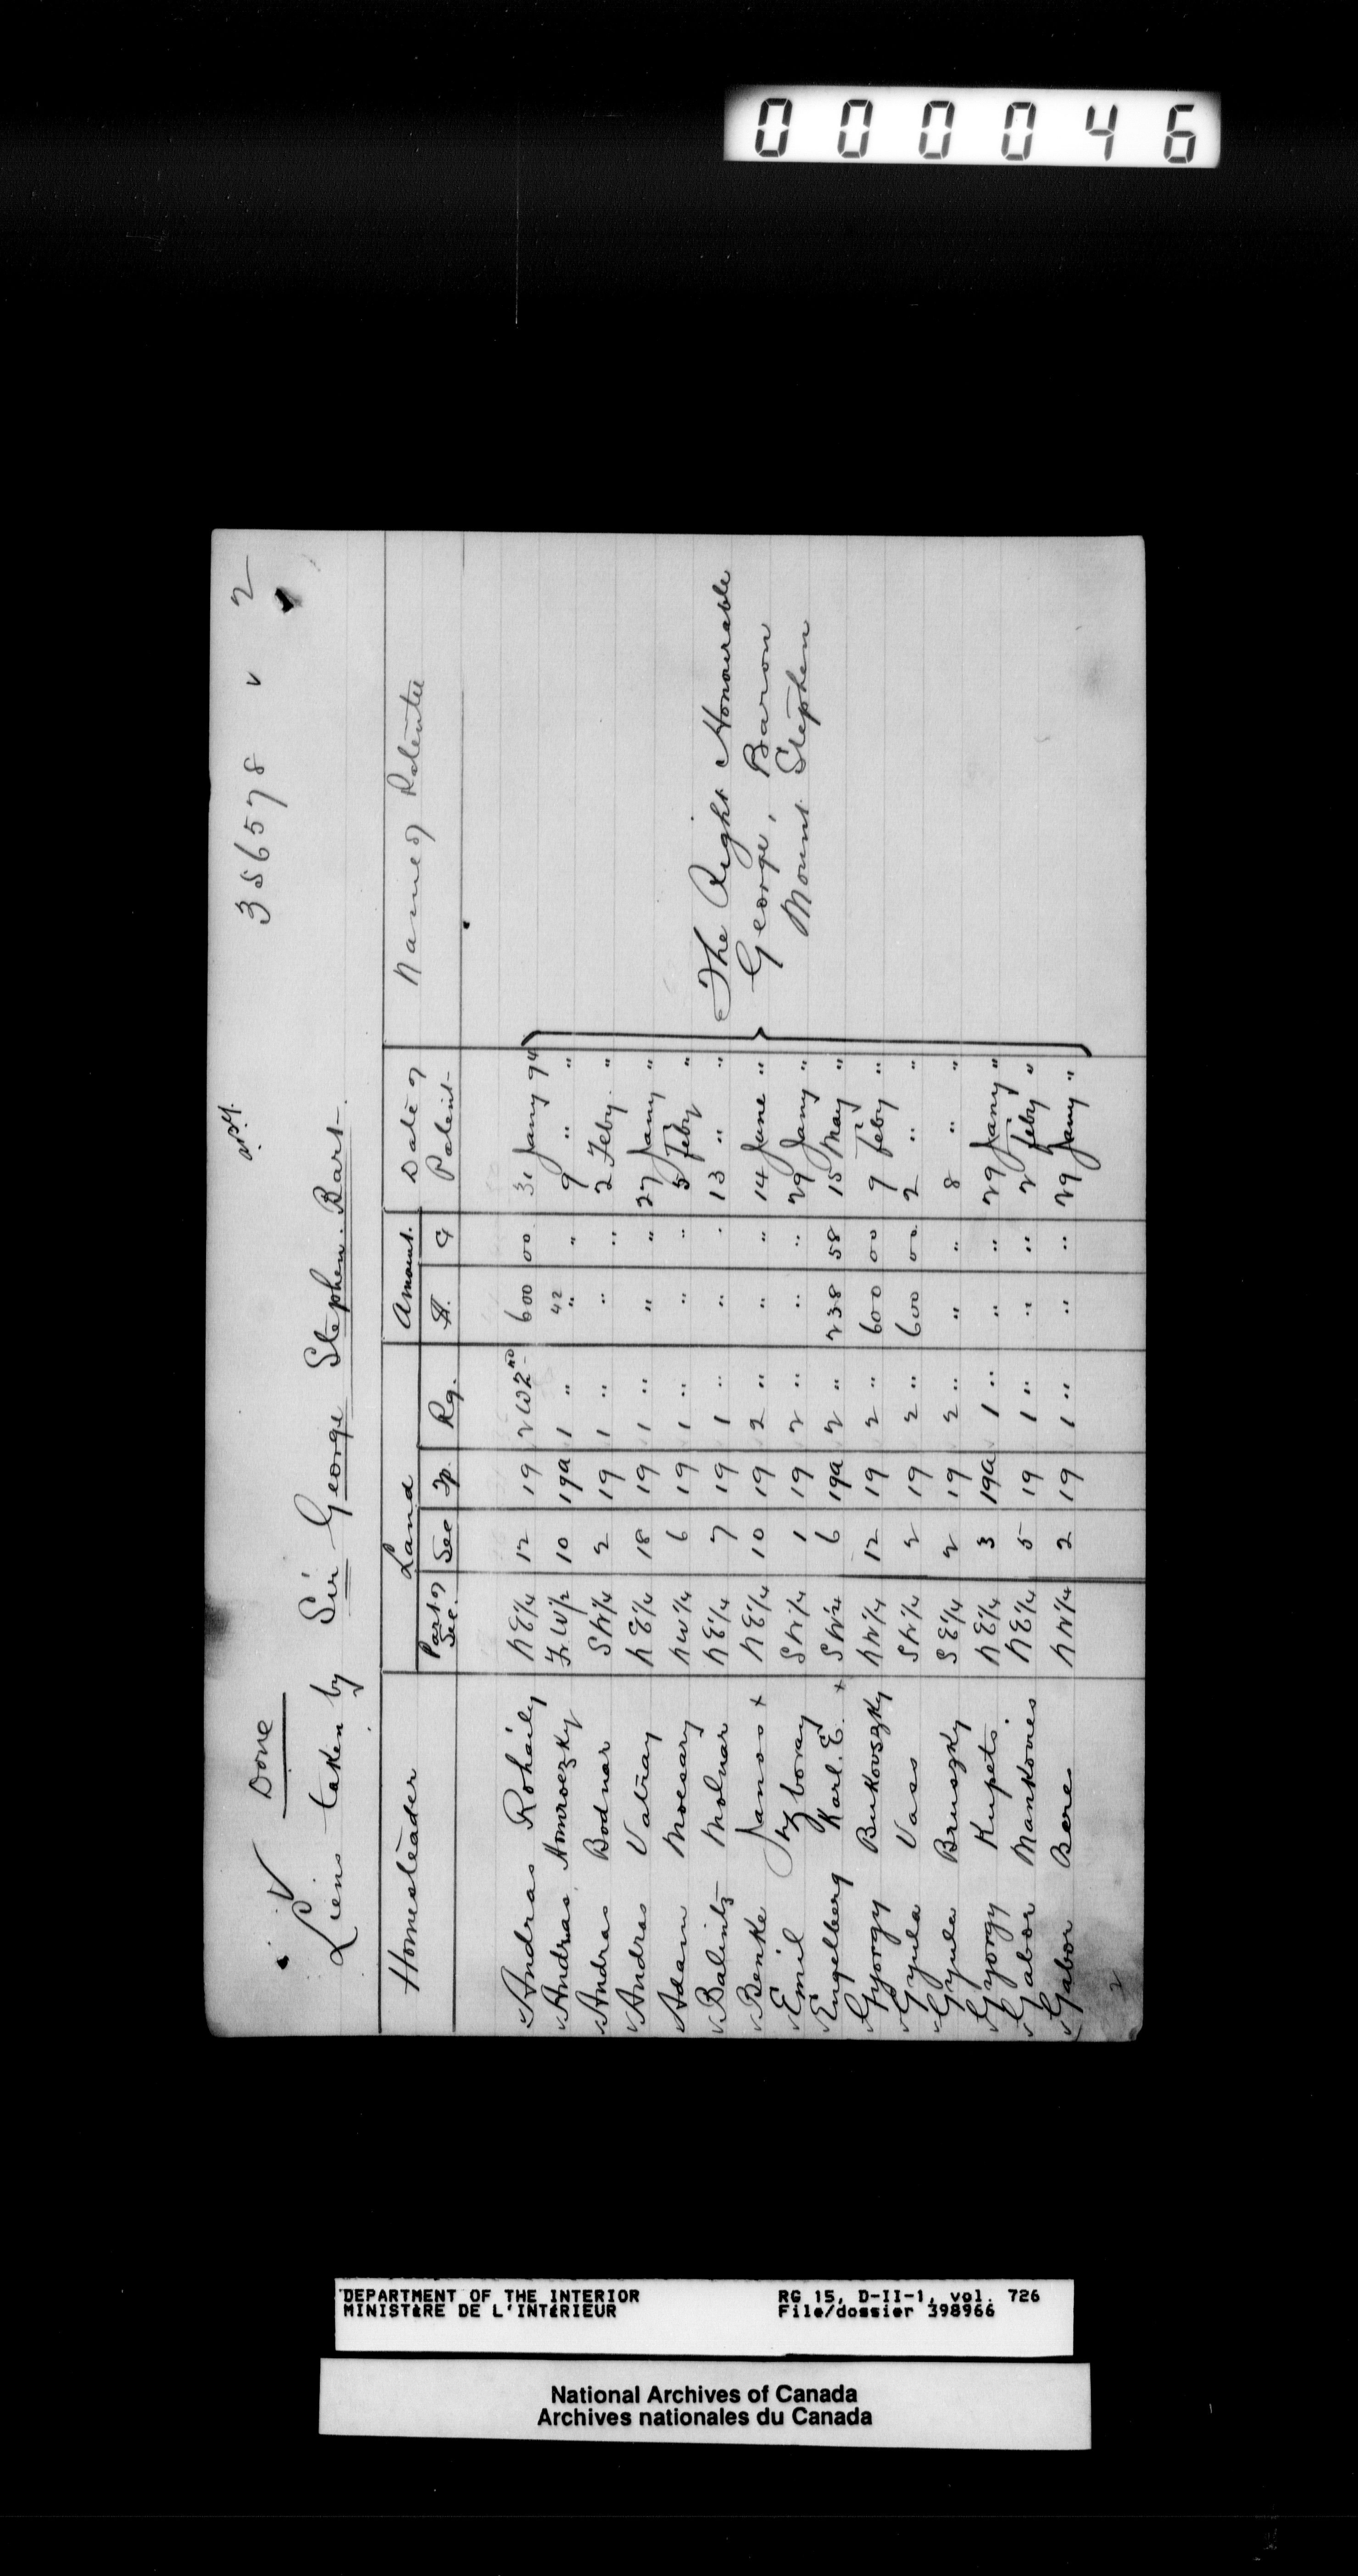 000046
a.B.Y.
356578 v 2
✓ Done
Liens taken by Sir George Stephen. Bart.
Homesteader Land Amount. Date of Patent Name of Patentee
Part of Sec. Sec Tp. Rg. $. C
Andras Rohaily NE¼ 12 19 2 W2nd 600 00 31 Jany 94
Andras Homroczky Fr. W½ 10 19a 1 " 42 " " 9 " "
Andras Bodnar SW¼ 2 19 1 " " " 2 Feby. "
Andras Vatray NE¼ 18 19 1 " " " 27 Jany "
Adam Mocsary NW¼ 6 19 1 " " " 5 Feby "
Balintz Molnar NE¼ 7 19 1 " " " 13 " "
Benke Janos x NE¼ 10 19 2 " " " 14 June "
Emil SW¼ 1 19 2 " " " 29 Jany "
Engelberg Karl. E. x SW¼ 6 19a 2 " 238 58 15 May "
Gyorgy Bukovszky NW¼ 12 19 2 " 600 00 9 Feby "
Gyula Vass SW¼ 2 19 2 " 600 00 2 " "
Gyula Bruszky SE¼ 2 19 2 " " " 8 " "
Gyorgy Kupets. NE¼ 3 19a 1 " " " 29 Jany "
Gabor Mankovies NE¼ 5 19 1 " " " 2 Feby "
Gabor Bere NW¼ 2 19 1 " " " 29 Jany "
The Right Honourable
George, Baron
Mount Stephen
2
DEPARTMENT OF THE INTERIOR RG 15, D-II-1, vol. 726
MINISTÈRE DE L'INTÉRIEUR File/dossier 398966
National Archives of Canada
Archives nationales du Canada